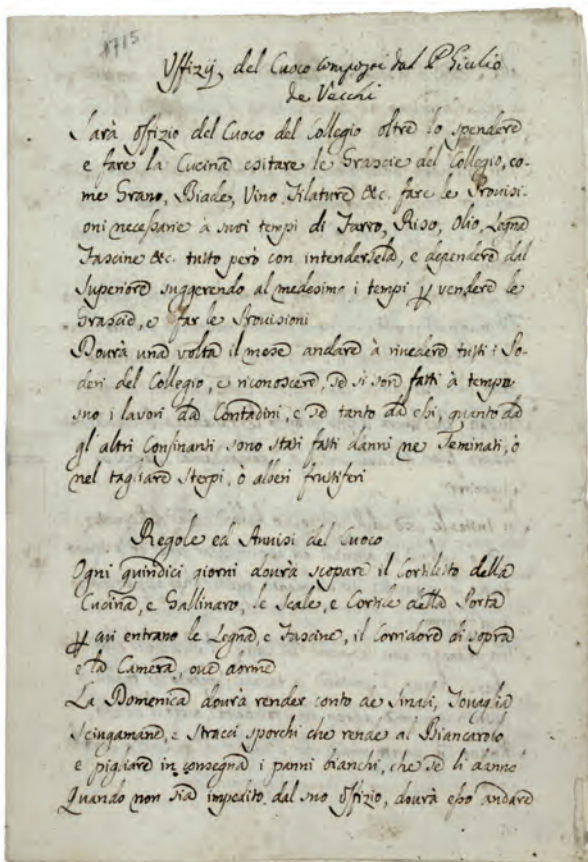 1715
Uffizij, del Cuoco composti dal P. Giulio
de Vecchi
Sarà offizio del Cuoco del Collegio oltre lo spendere
e fare la Cucina esitare le Grascie del Collegio, co-
me Grano, Biade, Vino, Filature &c. fare le Provisi-
oni necessarie à suoi tempi di Farro, Riso, Olio, Legna
Fascine &c. tutto però con intendersela, e dependere dal
Superiore suggerendo al medesimo i tempi p vendere le
Grascie, e far le Provisioni
Dovrà una volta il mese andare à rivedere tutti i Po-
deri del Collegio, e riconoscere, se si son fatti à tempo
suo i lavori da Contadini, e se tanto da essi, quanto da
gl'altri Confinanti sono stati fatti danni ne Seminati, ò
nel tagliare sterpi, ò alberi fruttiferi
Regole ed Avvisi del Cuoco
Ogni quindici giorni dovrà scopare il Cortiletto della
Cucina, e Gallinaro, le Scale, e Cortile della Porta
p qui entrano le Legna, e Fascine, il Corridore di sopra
e la Camera, ove dorme
La Domenica dovrà render conto de Sinali, Tovaglia
Sciugamano, e stracci sporchi che rende al Biancarolo
e pigliare in consegna i panni bianchi, che se li danno
Quando non sia impedito dal suo Offizio, dovrà esso andare